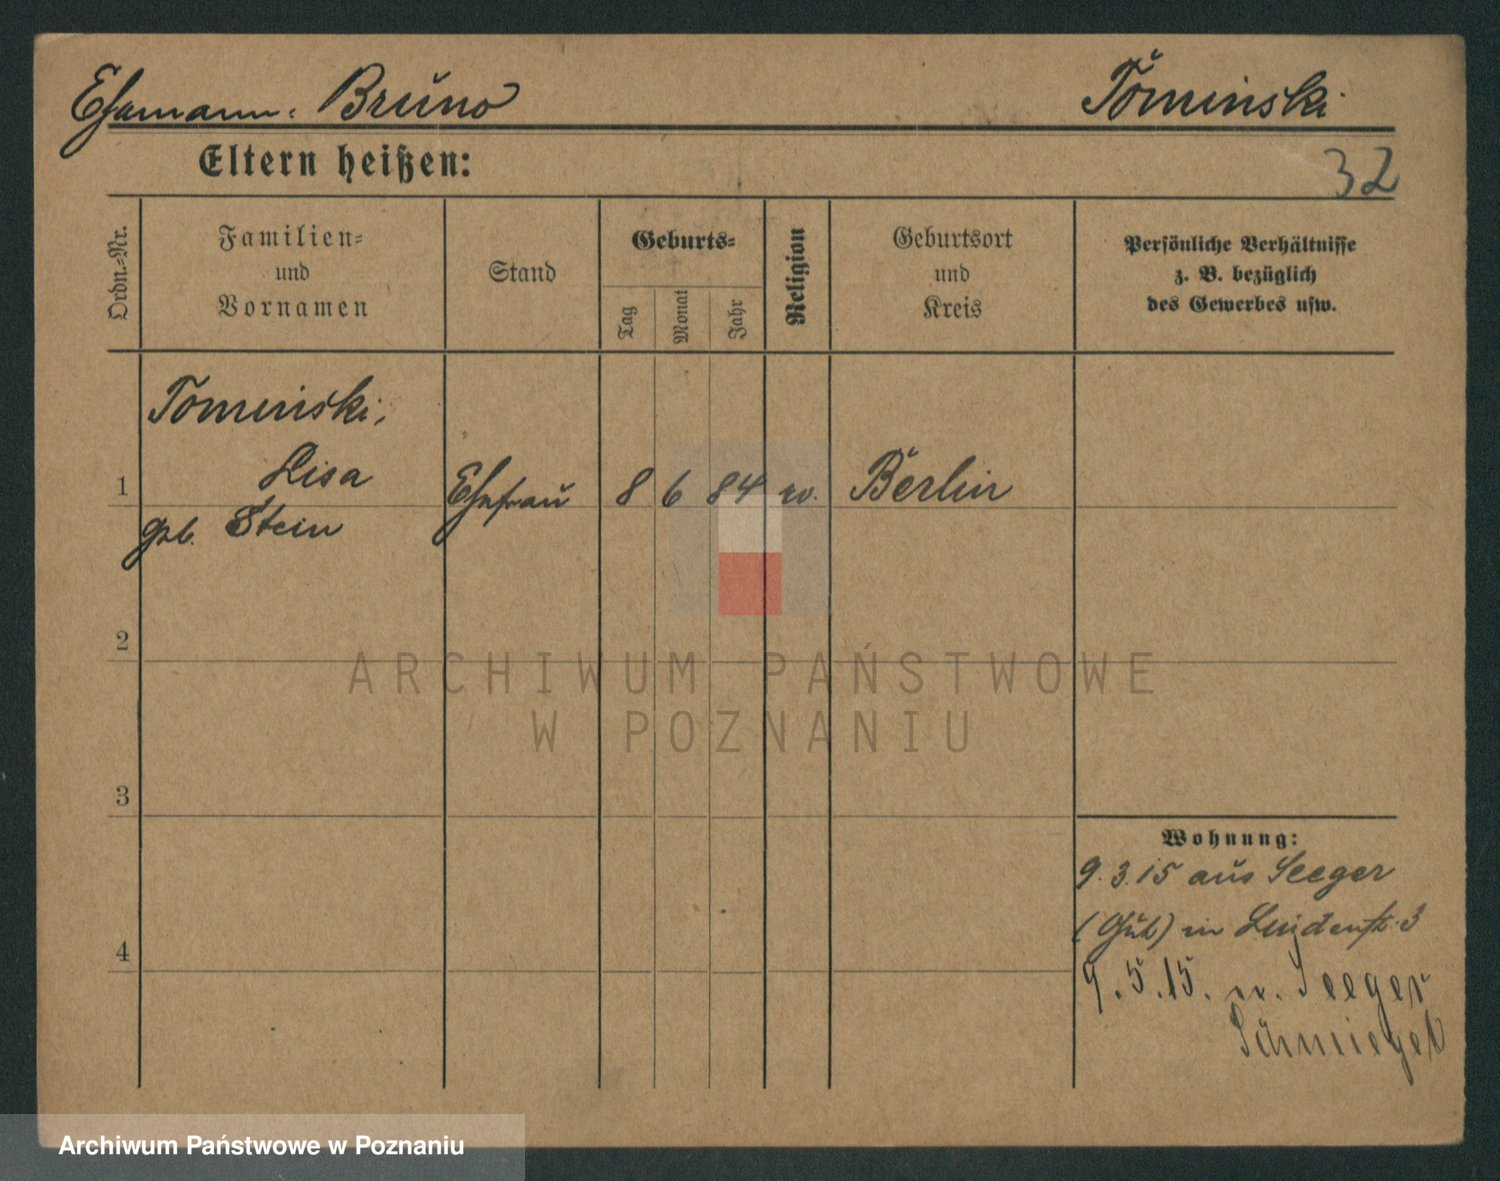 Ehemann: Bruno Tominski
Eltern heißen:
32
Ordn.-Nr.
Familien-
und
Vornamen
Stand
Geburts-
Tag
Monat
Jahr
Religion
Geburtsort
und
Kreis
Persönliche Verhältnisse
z. B. bezüglich
des Gewerbes usw.
Tominski,
1 Lisa Ehefrau 8 6 84 Berlin
geb. Stein
2
3
4
Wohnung:
9.3.15 aus Seeger
(Gut) in 3
9.5.15. n. Seeger
Schmiegel
ARCHIWUM PAŃSTWOWE
W POZNANIU
Archiwum Państwowe w Poznaniu